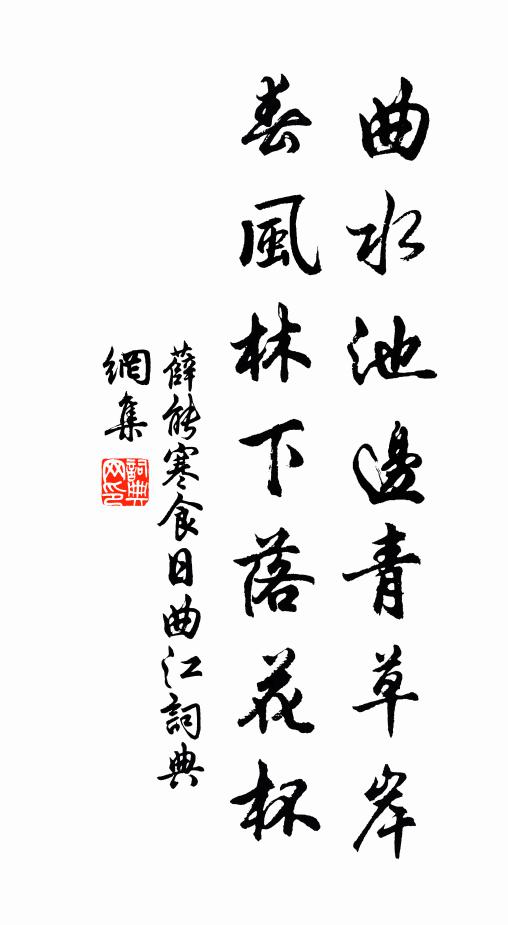 曲水池邊青草岸
春風林下落花杯
薛能寒食日曲江詞典
網集
詞典網印